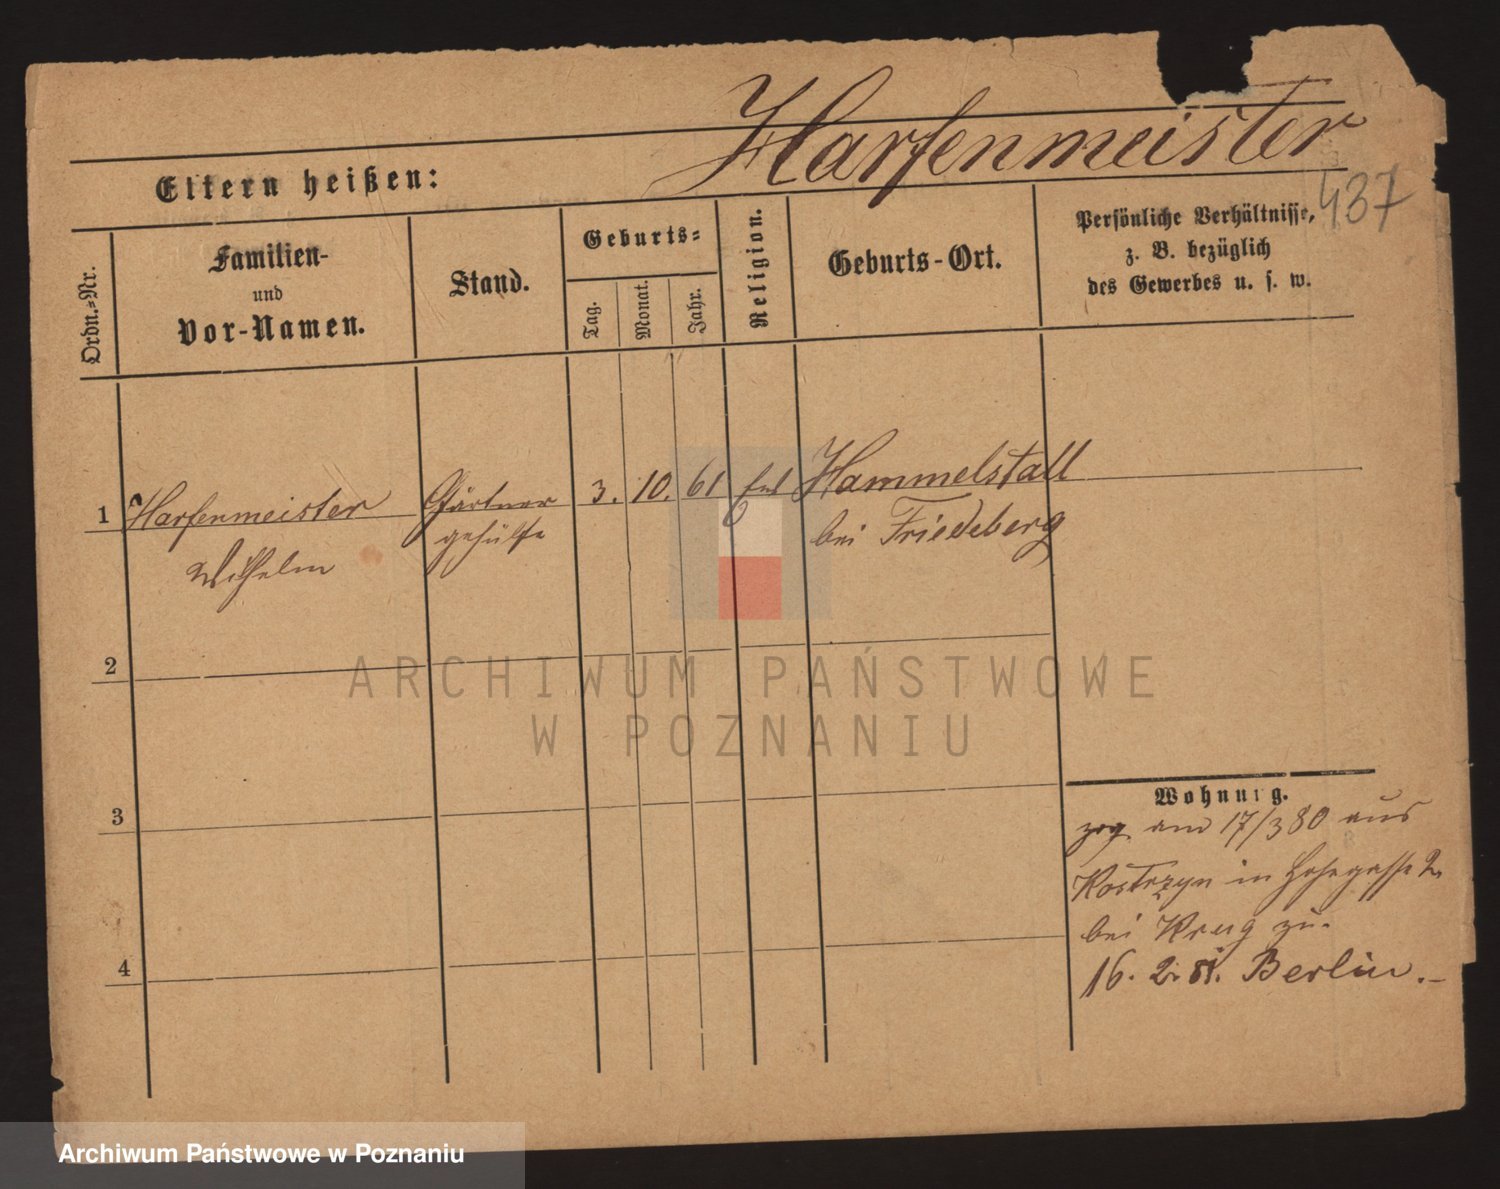 Harfenmeister
Eltern heißen:
437
Ordn.-Nr.
Familien-
und
Vor-Namen.
Stand.
Geburts-
Tag.
Monat.
Jahr.
Religion.
Geburts-Ort.
Persönliche Verhältnisse,
z. B. bezüglich
des Gewerbes u. s. w.
1 Harfenmeister Gärtner 3. 10. 61 Hammelstall
Wilhelm gehülfe bei Friedeberg
2
3
4
Wohnung.
zog am 17/3 80 aus
Kostrzyn in Hohegasse 2
bei Krug zu.
16. 2. 81. Berlin.-
ARCHIWUM PAŃSTWOWE
W POZNANIU
Archiwum Państwowe w Poznaniu